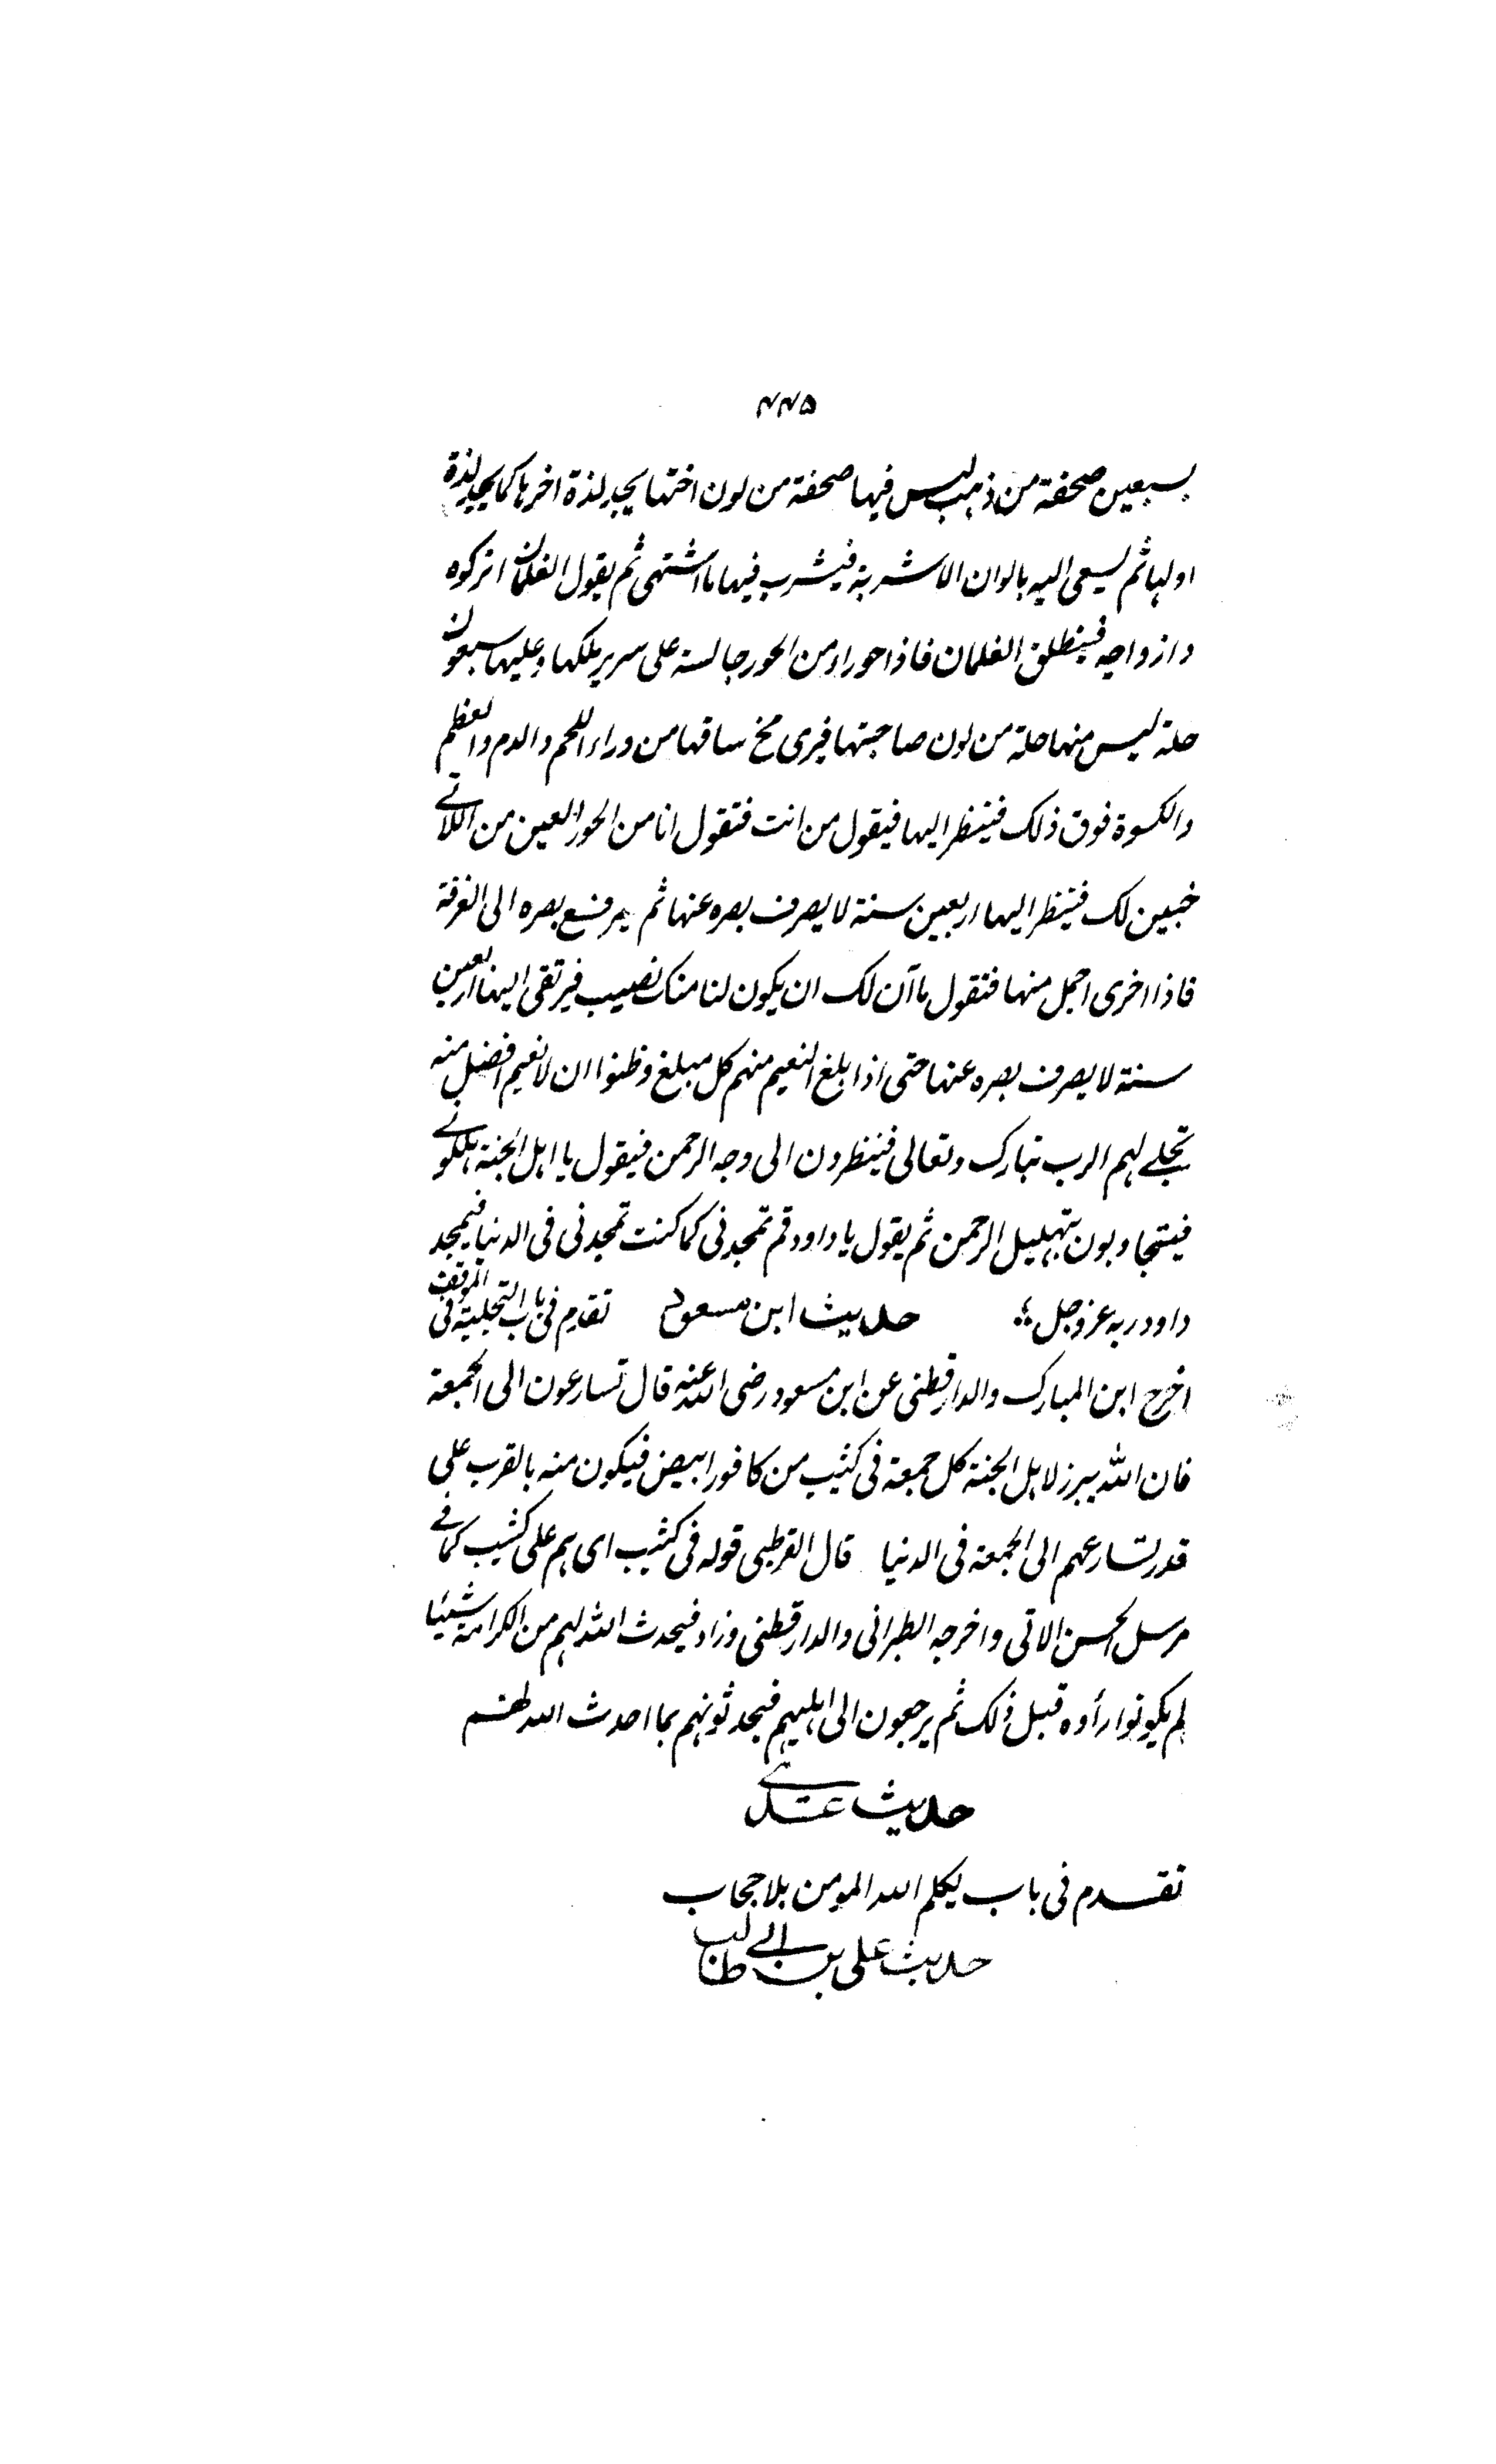 ۴۴۵
بسبعين صحفة من ذهب ليس فيها صحفة من لون اختها يجد لذة اخرها كما يجد لذة
اولها ثم يسعى اليه بالوان الاشربة فيشرب فيها ما اشتهى ثم يقول الغلمان اتركوه
وازواجه فينطلق الغلمان فاذا حوراء من الحور جالسة على سرير ملكها وعليها سبعون
حلة ليس منها حلة من لون صاحبتها فيرى مخ ساقها من وراء اللحم والدم والعظم
والكسوة فوق ذلك فينظر اليها فيقول من انت فتقول انا من الحور العين من اللاتي
خبين لك فينظر اليها اربعين سنة لا يصرف بصره عنها ثم يرفع بصره الى الغرفة
فاذا اخرى اجمل منها فتقول ما آن لك ان يكون لنا منك نصيب فيرتقى اليها اربعين
سنة لا يصرف بصره عنها حتى اذا بلغ النعيم منهم كل مبلغ وظنوا ان لا نعيم افضل منه
تجلى لهم الرب تبارك وتعالى فينظرون الى وجه الرحمن فيقول يا اهل الجنة هللوني
فيتجاوبون بتهليل الرحمن ثم يقول يا داود قم تمجدنى كما كنت تمجدنى فى الدنيا فيمجد
داود ربه عزوجل حديث ابن مسعود تقدم فى باب التجلية فى الموقف
اخرج ابن المبارك والدارقطنى عن ابن مسعود رضى الله عنه قال تسارعون الى الجمعة
فان الله يبرز لاهل الجنة كل جمعة فى كثيب من كافور ابيض فيكون منه بالقرب على
قدر تسارعهم الى الجمعة فى الدنيا قال القرطبى قوله فى كثيب اى هم على كثيب كما فى
مرسل الحسن الاتى واخرجه الطبرانى والدارقطنى وزاد فيحدث الله لهم من الكرامة شيئا
لم يكونوا رأوه قبل ذلك ثم يرجعون الى اهليهم فيحدثونهم بما احدث الله لهم
حديث عدي
تقدم فى باب يكلم الله المومن بلا حجاب
حديث على بن ابي طالب